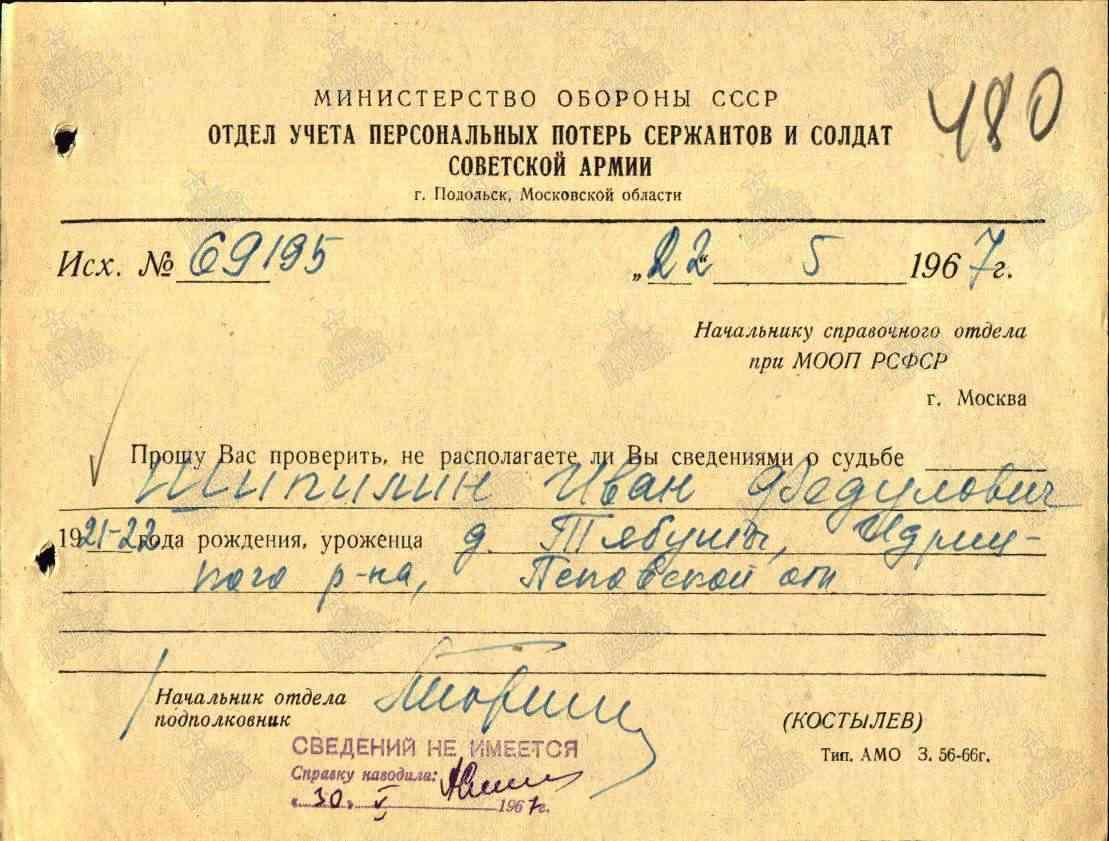 480
МИНИСТЕРСТВО ОБОРОНЫ СССР
ОТДЕЛ УЧЕТА ПЕРСОНАЛЬНЫХ ПОТЕРЬ СЕРЖАНТОВ И СОЛДАТ
СОВЕТСКОЙ АРМИИ
г. Подольск, Московской области
Исх. № 69195 „22“ 5 1967г.
Начальнику справочного отдела
при МООП РСФСР
г. Москва
Прошу Вас проверить, не располагаете ли Вы сведениями о судьбе
Шипилин Иван Федулович
1921-22 года рождения, уроженца д. Тябуты, Идриц-
кого р-на, Псковской оп
Начальник отдела
подполковник (КОСТЫЛЕВ)
СВЕДЕНИЙ НЕ ИМЕЕТСЯ
Справку наводила:
„30„ V 1967г.
Тип. АМО З. 56-66г.